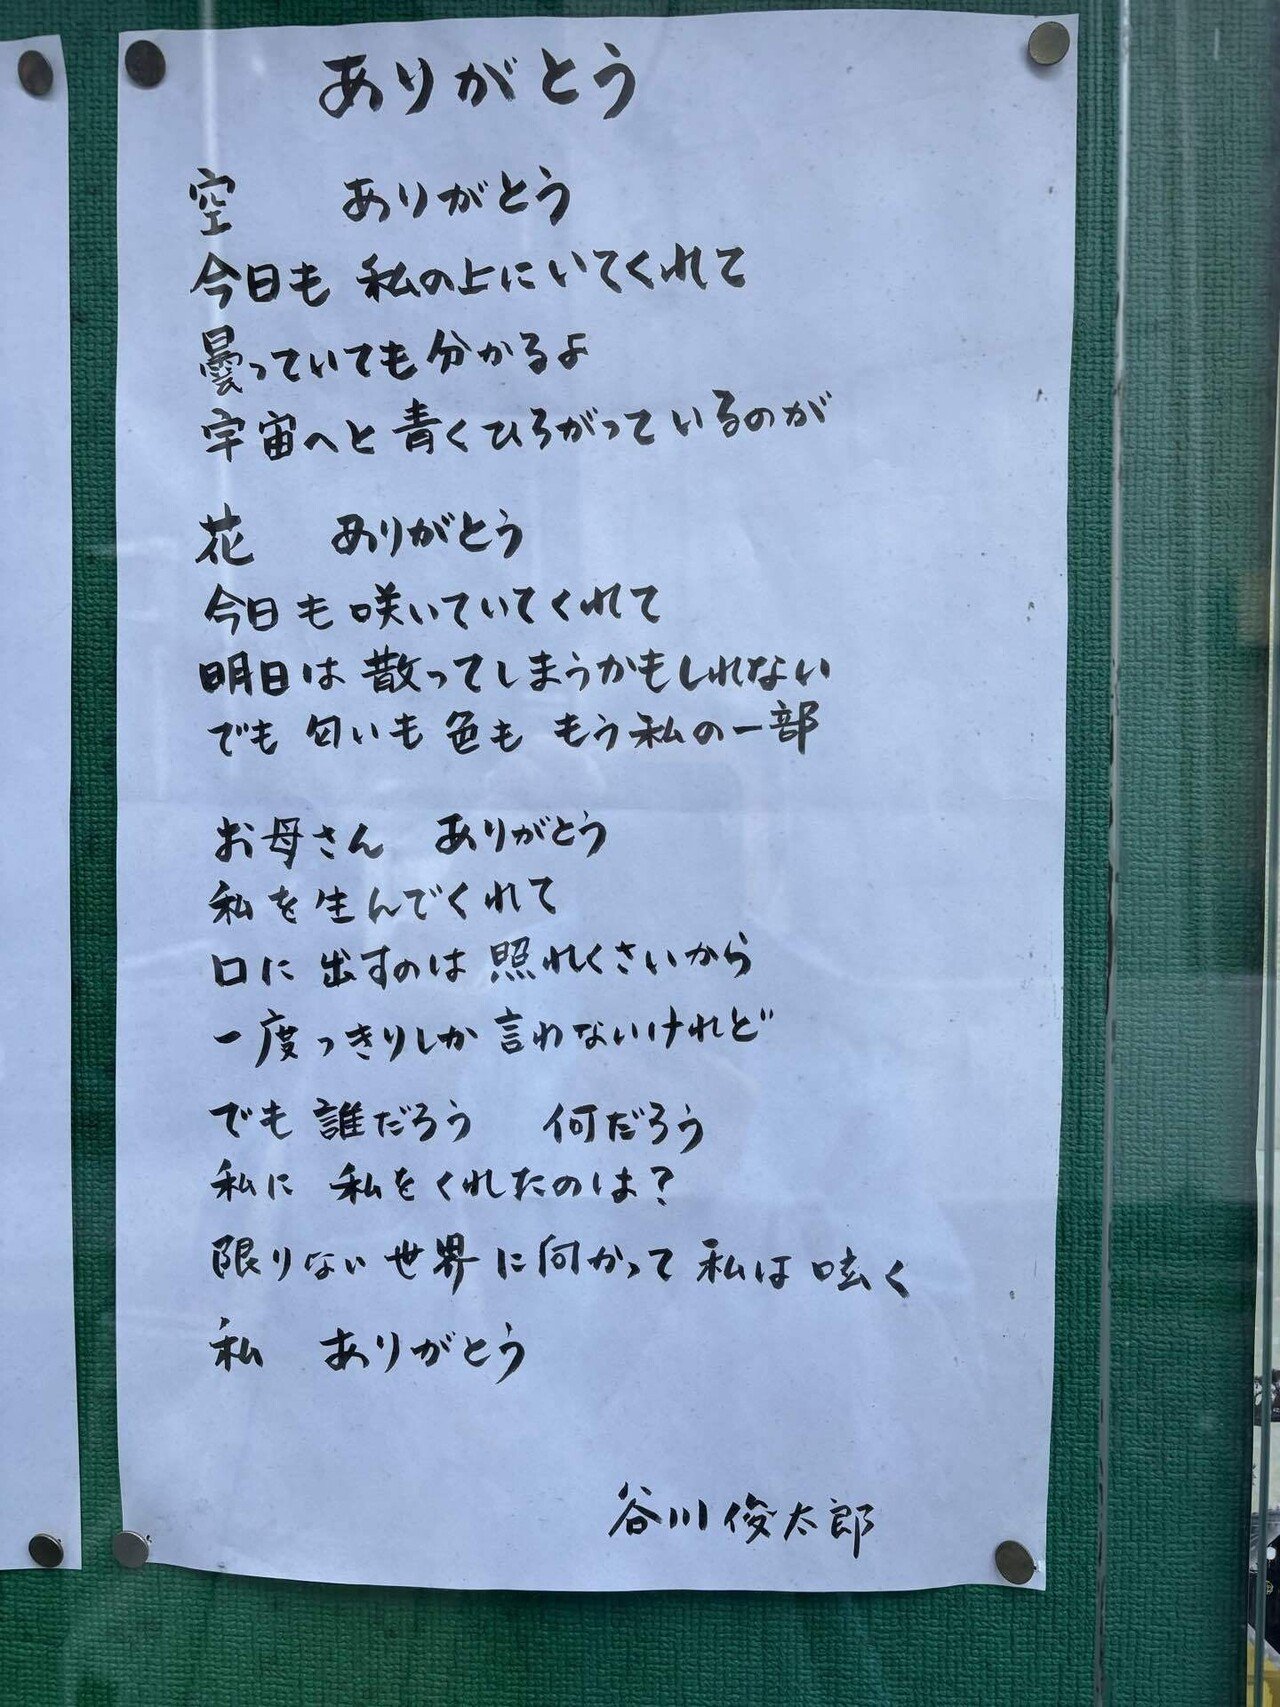 ありがとう
空　ありがとう
今日も 私の上にいてくれて
曇っていても分かるよ
宇宙へと 青くひろがっているのが
花　ありがとう
今日も 咲いていてくれて
明日は 散ってしまうかもしれない
でも 匂いも 色も もう私の一部
お母さん　ありがとう
私を生んでくれて
口に 出すのは 照れくさいから
一度っきりしか 言わないけれど
でも 誰だろう　何だろう
私に 私をくれたのは？
限りない世界に向かって 私は 呟く
私　ありがとう
谷川俊太郎